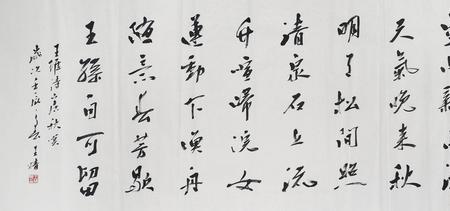 天氣晚來秋
明月松間照
清泉石上流
竹喧歸浣女
蓮動下漁舟
隨意春芳歇
王孫自可留
王維詩山居秋暝
歲次壬辰